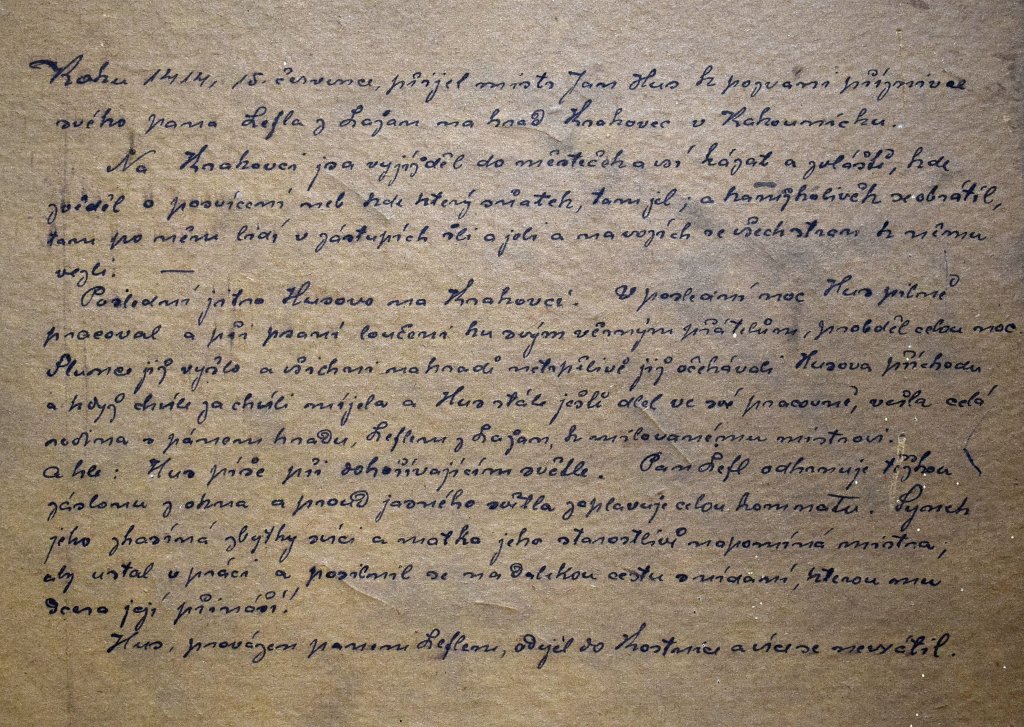 Roku 1414, 15. července, přijel mistr Jan Hus k pozvání příznivce
svého pana Lefla z Lažan na hrad Krakovec v Rakovnicku.
Na Krakovci jsa vyjížděl do městeček a vsí kázat a zvláště, kde
zvěděl o posvícení neb kde který sňatek, tam jel; a kamžkolivěk se obrátil,
tam po něm lidí v zástupích šli a jeli a na vozích se všech stran k němu
vezli. —
Poslední jitro Husovo na Krakovci. V poslední noc Hus pilně
pracoval a při psaní loučení ku svým věrným přátelům, probděl celou noc.
Slunce již vyšlo a všichni na hradě netrpělivě již očekávali Husova příchodu
a když chvíle za chvílí míjela a Hus stále ještě dlel ve své pracovně, vešla celá
rodina s pánem hradu, Leflem z Lažan, k milovanému mistrovi.
A hle: Hus píše při dohořívajícím světle. Pan Lefl odhrnuje těžkou
záslonu z okna a proud jasného světla zaplavuje celou komnatu. Synek
jeho zhasíná zbytky svící a matka jeho starostlivě napomíná mistra,
aby ustal v práci a posilnil se na dalekou cestu snídaní, kterou mu
dcera její přináší!
Hus, provázen panem Leflem, odjel do Kostnice a více se nevrátil.